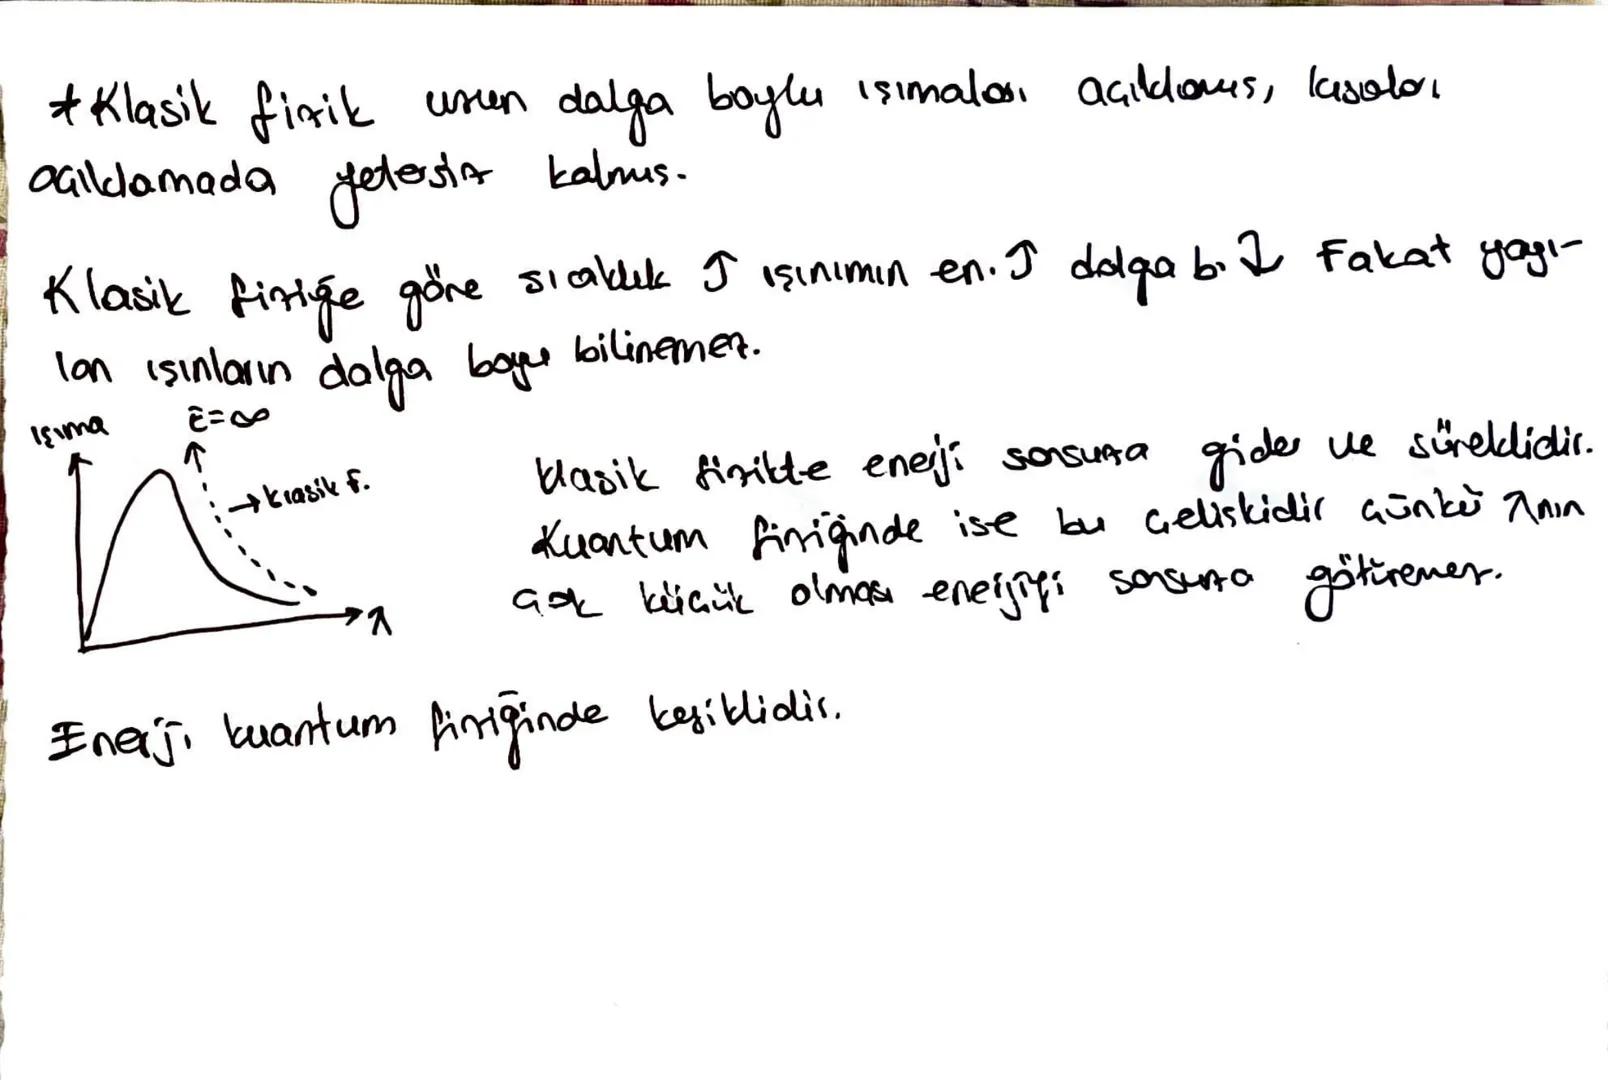 * Klasik fizik uzun dalga boylu ışımaları açıklamış, kısaları
açıklamada yetersiz kalmış.
Klasik fiziğe göre sıcaklık ↑ ışınımın en. ↑ dalga b. ↓ Fakat yayı-
lan ışınların dalga boyu bilinemez.
Işıma
E=∞
→ klasik f.
λ
klasik fizikte enerji sonsuza gider ve süreklidir.
Kuantum fiziğinde ise bu çelişkidir çünkü λnın
çok küçük olması enerjiyi sonsuza götüremez.
Enerji kuantum fiziğinde kesiklidir.